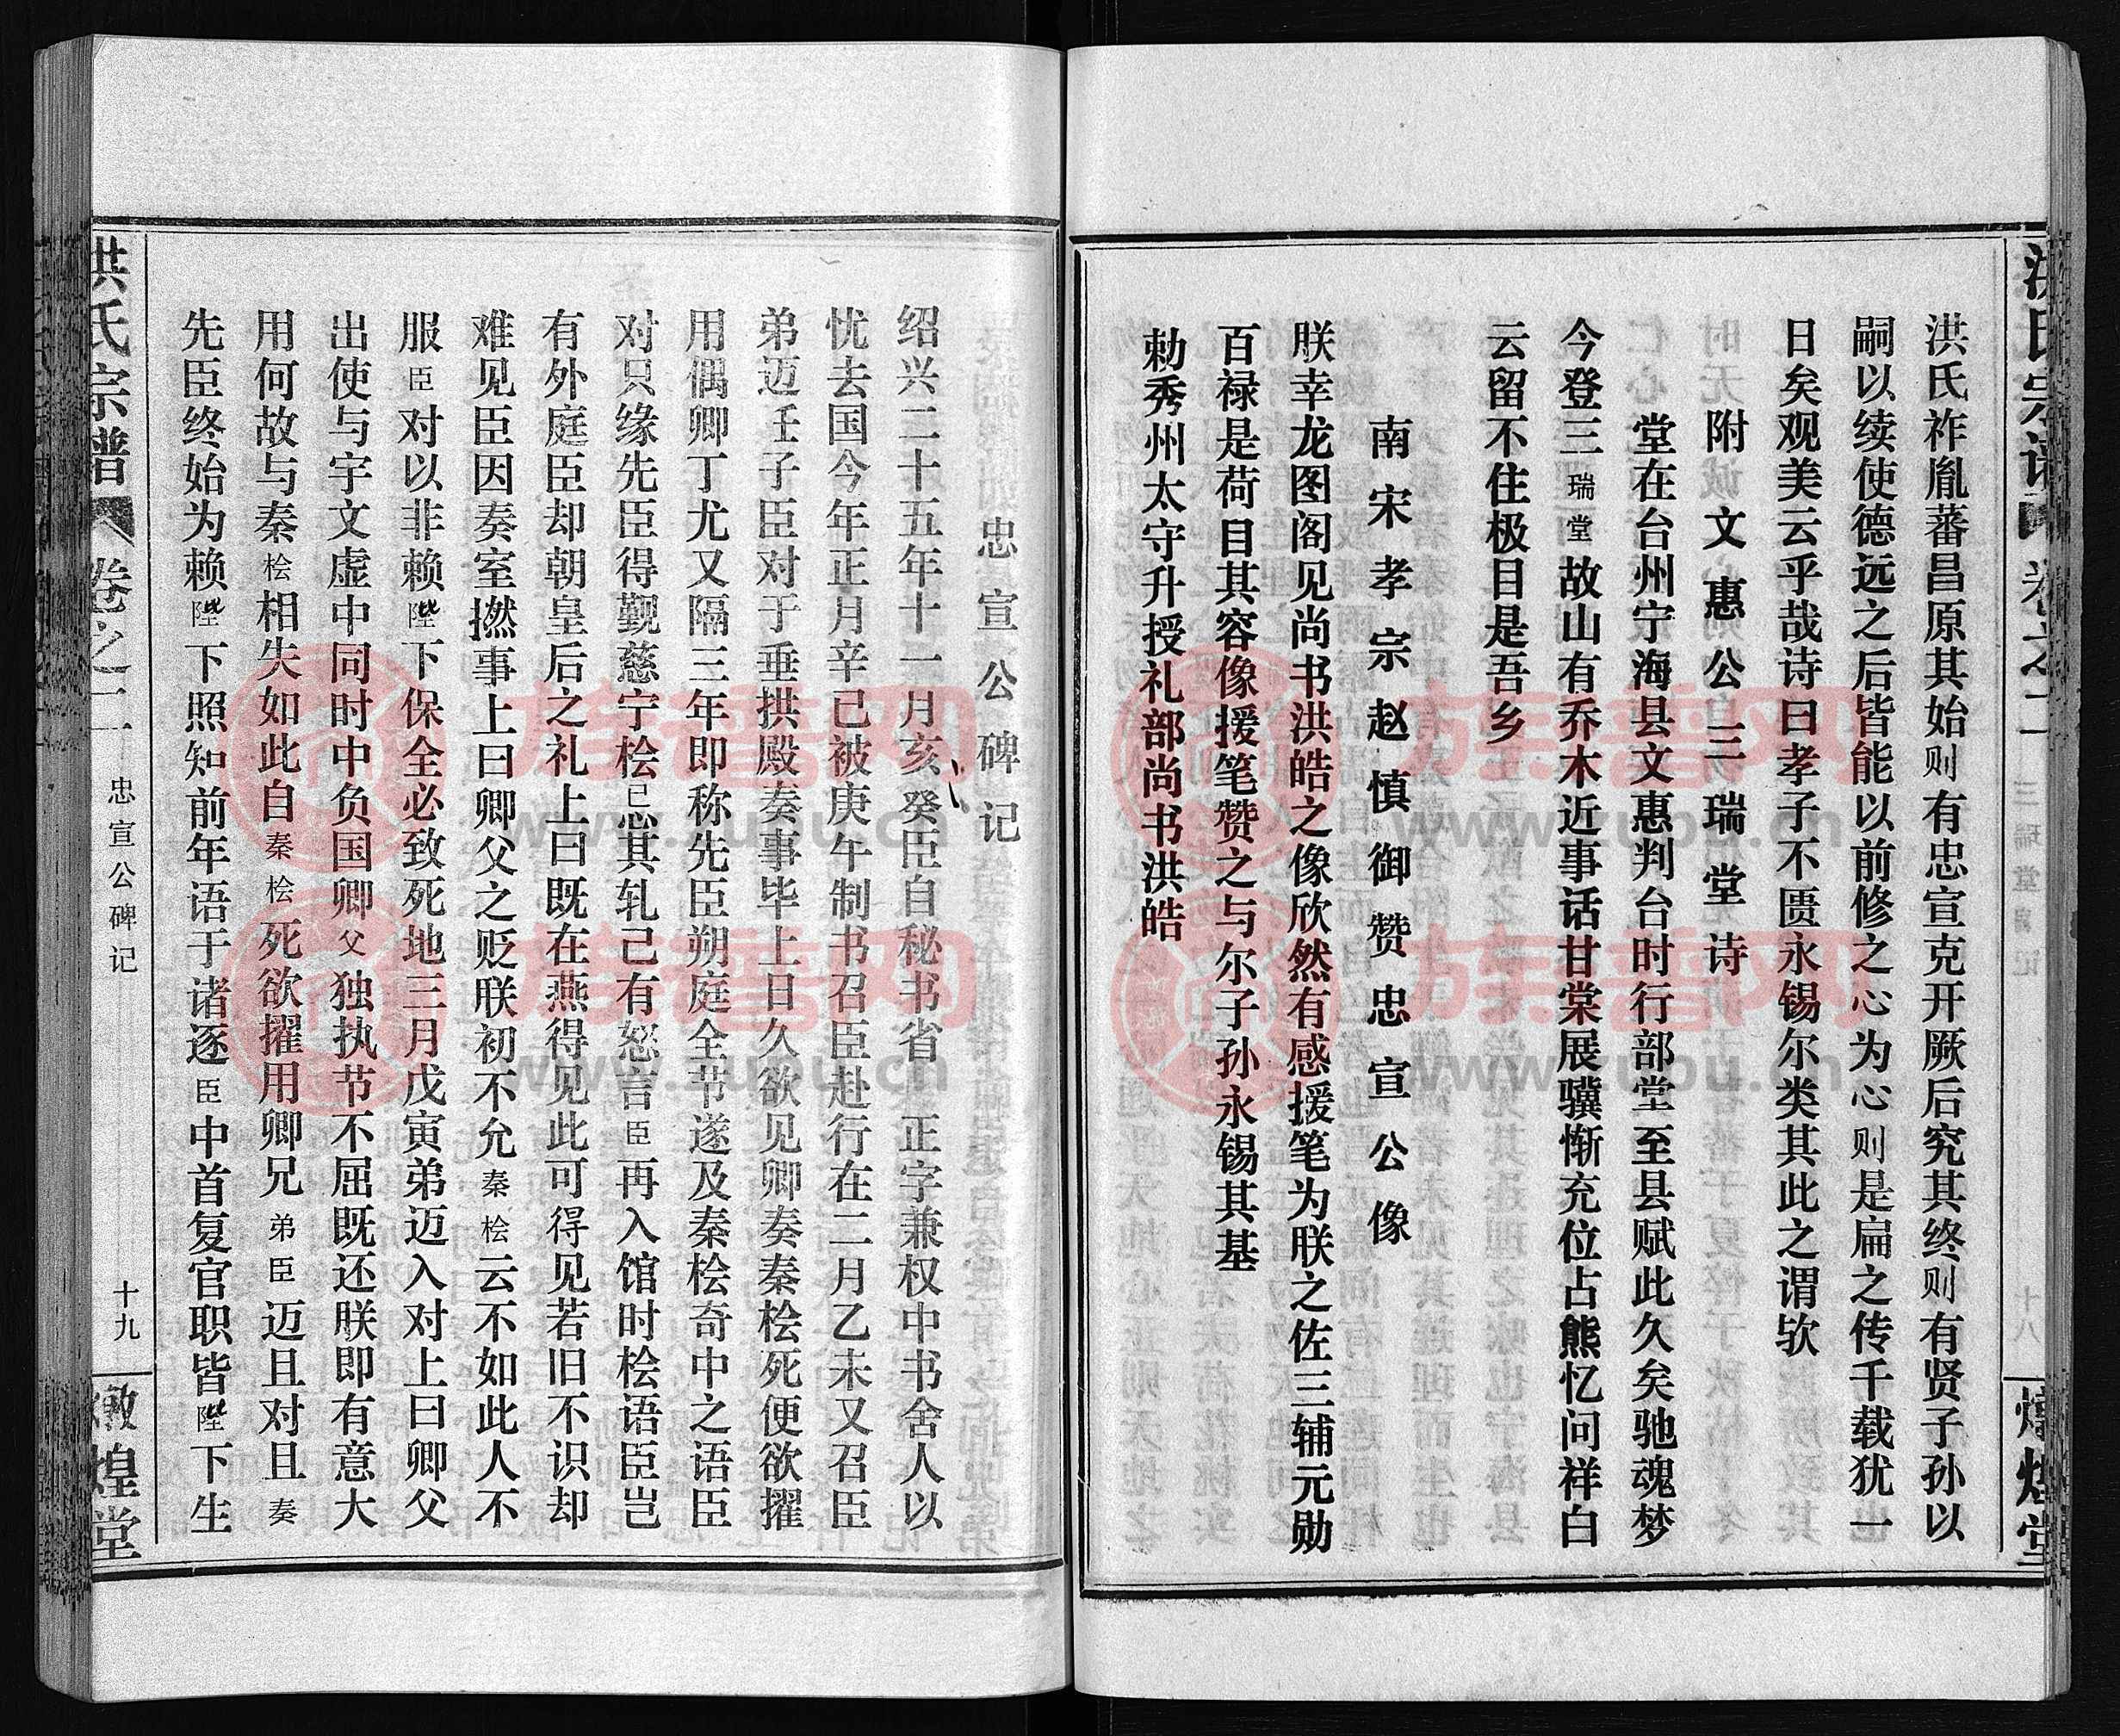 洪氏宗谱
卷之二
三瑞堂记
十八
燉煌堂
洪氏祚胤蕃昌原其始则有忠宣克开厥后究其终则有贤子孙以
嗣以续使德远之后皆能以前修之心为心则是扁之传千载犹一
日矣观美云乎哉诗曰孝子不匮永锡尔类其此之谓欤
附文惠公三瑞堂诗
堂在台州宁海县文惠判台时行部堂至县赋此久矣驰魂梦
今登三瑞堂故山有乔木近事话甘棠展骥惭充位占熊忆问祥白
云留不住极目是吾乡
南宋孝宗赵慎御赞忠宣公像
朕幸龙图阁见尚书洪皓之像欣然有感援笔为朕之佐三辅元勋
百禄是荷目其容像援笔赞之与尔子孙永锡其基
勅秀州太守升授礼部尚书洪皓
忠宣公碑记
绍兴二十五年十一月亥癸臣自秘书省正字兼权中书舍人以
忧去国今年正月辛已被庚午制书召臣赴行在二月乙未又召臣
弟迈壬子臣对于垂拱殿奏事毕上日久欲见卿奏秦桧死便欲擢
用偶卿丁尤又隔三年即称先臣朔庭全节遂及秦桧奇中之语臣
对只缘先臣得觐慈宁桧已忌其轧己有怒言臣再入馆时桧语臣岂
有外庭臣却朝皇后之礼上曰既在燕得见此可得见若旧不识却
难见臣因奏室撚事上曰卿父之贬朕初不允秦桧云不如此人不
服臣对以非赖陛下保全必致死地三月戊寅弟迈入对上曰卿父
出使与宇文虚中同时中负国卿父独执节不屈既还朕即有意大
用何故与秦桧相失如此自秦桧死欲擢用卿兄弟臣迈且对且奏
先臣终始为赖陛下照知前年语于诸逐臣中首复官职皆陛下生
洪氏宗谱
卷之二
忠宣公碑记
十九
燉煌堂
族谱网
www.zupu.cn
族谱网
www.zupu.cn
族谱网
www.zupu.cn
族谱网
www.zupu.cn